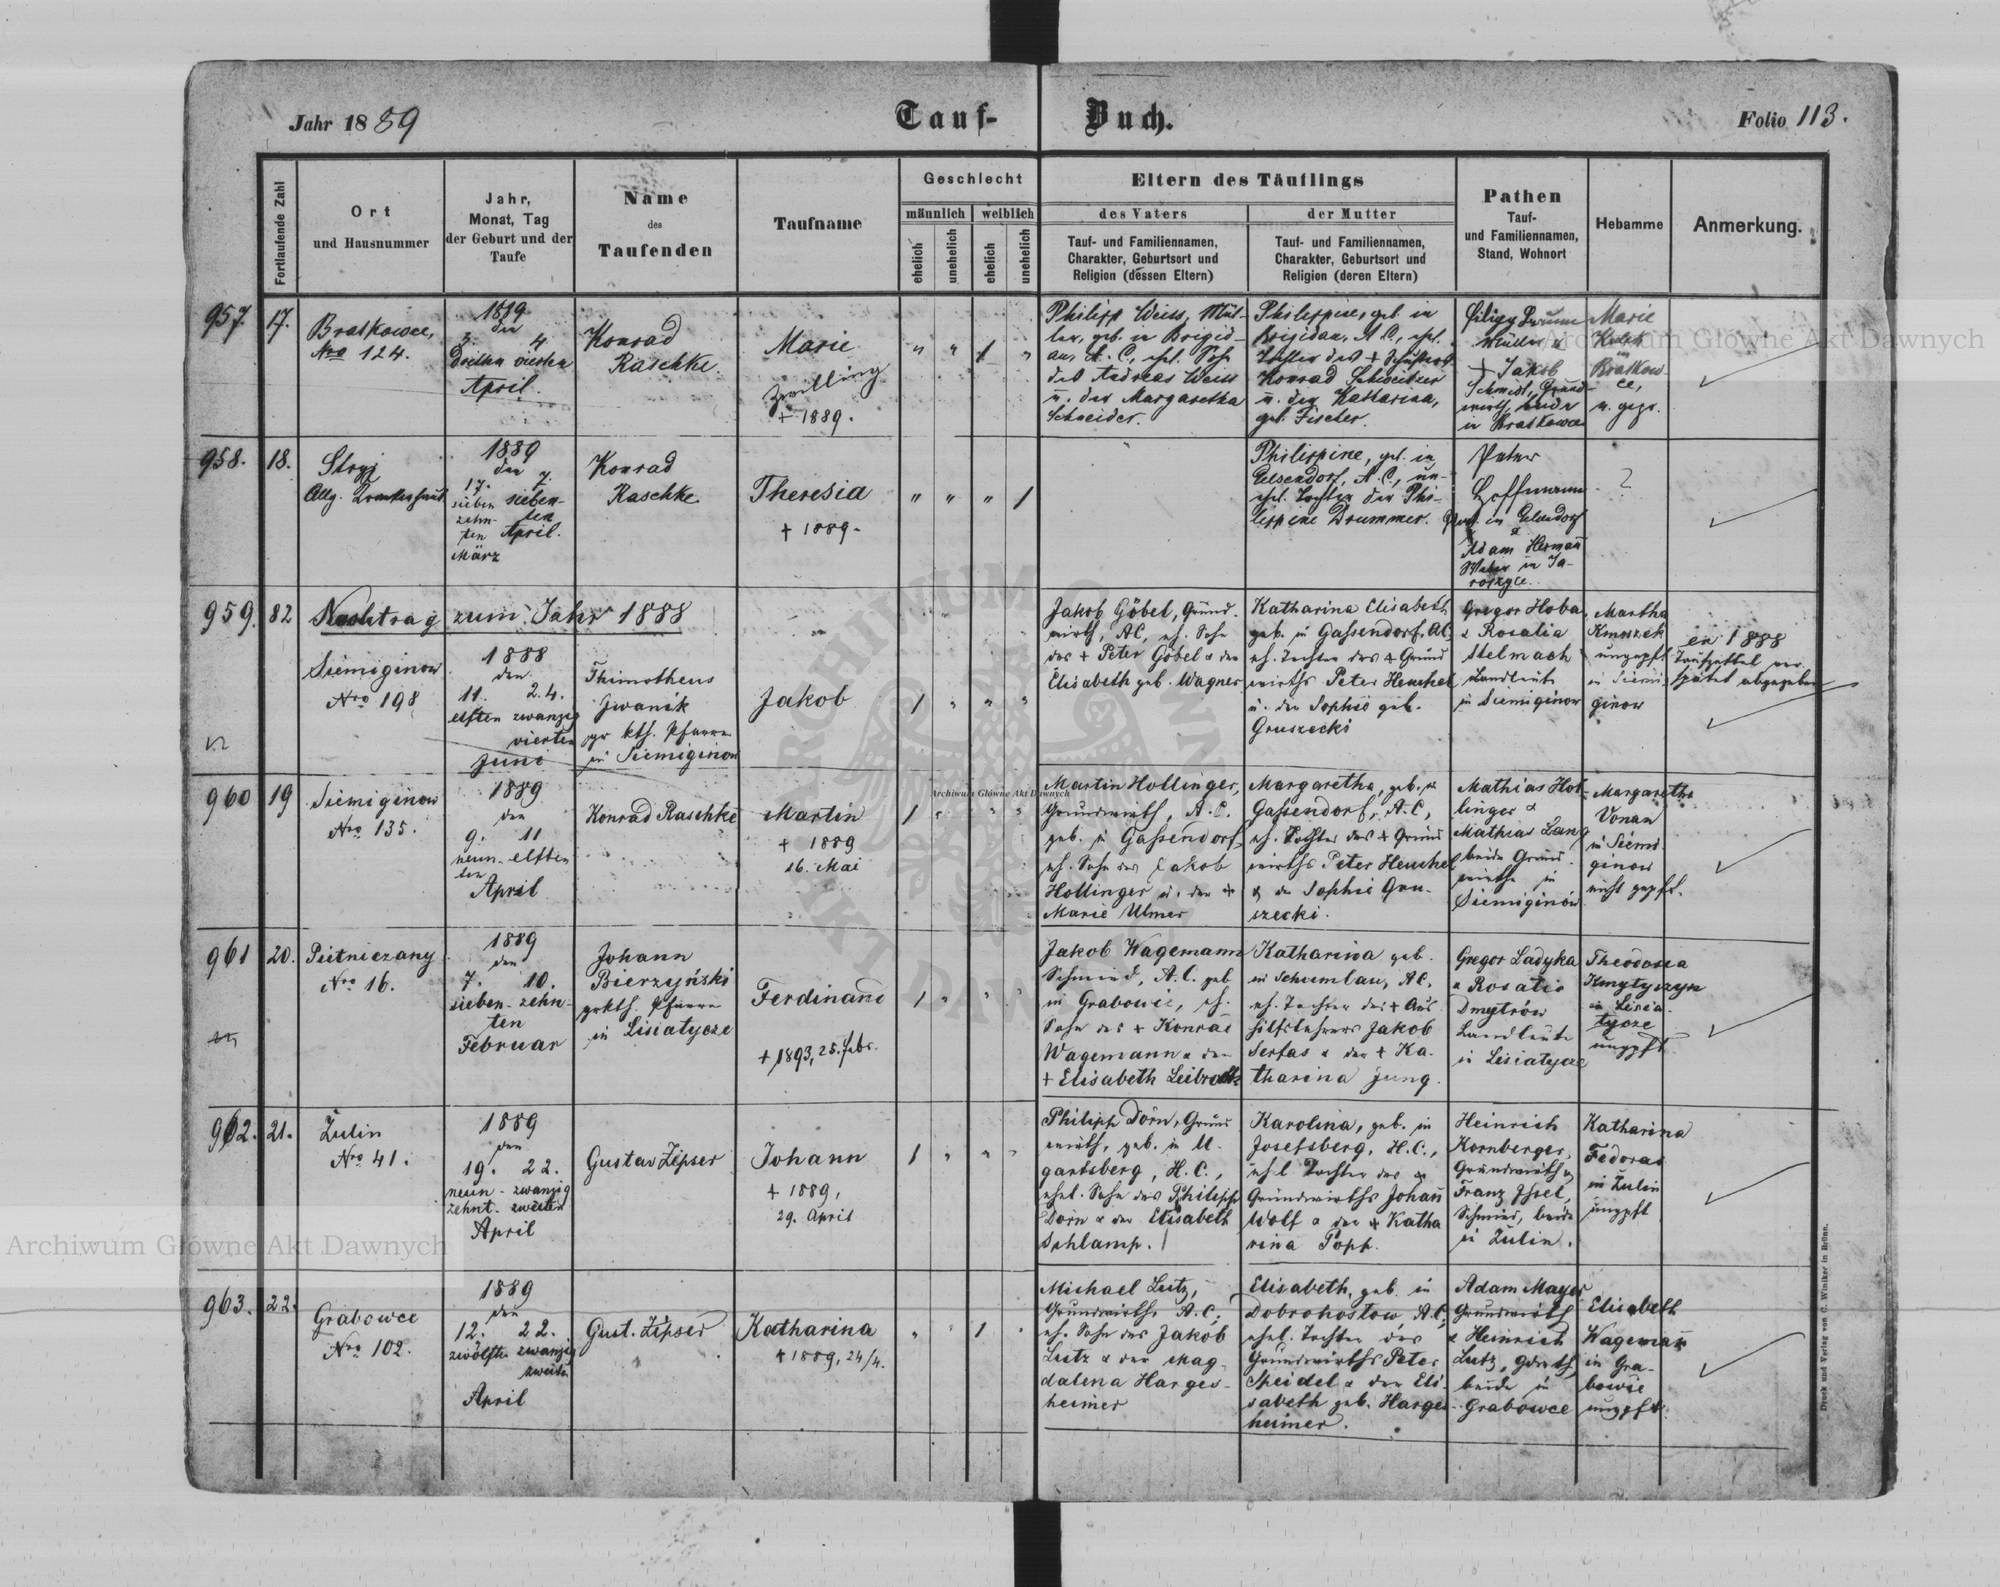 Jahr 1889
Tauf-Buch.
Folio 113.
Fortlaufende Zahl
Ort
und Hausnummer
Jahr,
Monat, Tag
der Geburt und der
Taufe
Name
des
Taufenden
Taufname
Geschlecht
männlich
weiblich
ehelich
unehelich
ehelich
unehelich
Eltern des Täuflings
des Vaters
der Mutter
Tauf- und Familiennamen,
Charakter, Geburtsort und
Religion (dessen Eltern)
Tauf- und Familiennamen,
Charakter, Geburtsort und
Religion (deren Eltern)
Pathen
Tauf-
und Familiennamen,
Stand, Wohnort
Hebamme
Anmerkung.
957. 17.
Bratkowce,
Nro 124.
1889
den
3. 4
dritten vierten
April.
Konrad
Raschke.
Marie
Zwilling
+ 1889.
" " 1 "
Philipp Weiss, Mül-
ler, geb. in Brigid-
au, A. C., ehl. Sohn
des Andreas Weiss
u. der Margaretha
Schneider.
Philippine, geb. in
Brigidau, A. C., ehl.
Tochter des +
Konrad Schweitzer
u. der Katharina,
geb. Fischer.
+ Jakob
Schmidt, Grund-
wirth, beide
in Bratkowce
Marie
in
Bratkow-
ce,
958. 18.
Stryj
Allg. Krankenhaus
1889
den
17. 7.
sieben sieben-
zehn- ten
ten April.
März
Konrad
Raschke
Theresia
+ 1889.
" " " 1
Philippine, geb. in
Gelsendorf, A. C., un-
ehl. Tochter der Phi-
lippine Drummer.
Peter
Hoffmann
in Gelsendorf
&
Adam Hermann
in Ja-
roszyce.
?
959. 82
Nachtrag zum Jahr 1888
Siemiginow
Nro 198
1888
den
11. 24.
elften zwanzig
vierten
Juni
Thimotheus
Gwanik
gr kth. Pfarrer
in Siemiginow
Jakob
1 " " "
Jakob Göbel, Grund-
wirth, AC, eh. Sohn
des + Peter Göbel & der
Elisabeth geb. Wagner
Katharina Elisabeth
geb. in Gassendorf, AC
eh. Tochter des + Grund
wirths Peter Heuchel
u. der Sophie geb.
Gruszecki
Gregor Hoba
& Rosalia
Stelmach
Landleute
in Siemiginow
Martha
ungepft
in Siemi-
ginow
1888
Taufzettel ver-
spätet abgegeben
960 19
Siemiginow
Nro 135.
1889
den
9. 11
neun- elften
ten
April
Konrad Raschke
Martin
+ 1889
16. Mai
1 " " "
Martin Hollinger,
Grundwirth, A. C.
geb. in Gassendorf,
eh. Sohn des Jakob
Hollinger u. der +
Marie Ulmer
Margaretha, geb. in
Gassendorf, A. C.,
eh. Tochter des + Grund
wirths Peter Heuchel
& der Sophie Gru-
szecki.
Mathias Hol-
linger &
Mathias Lang
beide Grund-
wirthe in
Siemiginow
Margaretha
Vonau
in Siemi-
ginow
nicht gepft.
961 20.
Pietniczany
Nro 16.
1889
den
7. 10.
sieben- zehn-
ten
Februar
Johann
Bierzyński
grkth. Pfarrer
in Lisiatycze
Ferdinand
+ 1893, 25. Febr.
1 " " "
Jakob Wagemann
Schmied, A. C. geb
in Grabowce, eh.
Sohn des + Konrad
Wagemann & der
+ Elisabeth
Katharina geb.
in Schumlau, AC,
eh. Tochter des + Aus
hilfslehrers Jakob
Serfas & der + Ka-
tharina Jung.
Gregor Ladyka
& Rosalie
Dmytrów
Landleute
in Lisiatycze
Theodosia
in Lisia-
tycze
ungpft
962. 21.
Zulin
Nro 41.
1889
den
19. 22.
neun- zwanzig
zehnt. zweiten
April
Gustav Zipser
Johann
+ 1889,
29. April
1 " " "
Philipp Dorn, Grund
wirth, geb. in U-
gartsberg, H. C.,
ehel. Sohn des Philipp
Dorn & der Elisabeth
Schlamp.
Karolina, geb. in
Josefsberg, H. C.,
ehl Tochter des
Grundwirths Johann
Wolf & der + Katha
rina Popp.
Heinrich
Kornberger,
Grundwirth &
Franz
Schmied, beide
in Zulin.
Katharina
Fedoras
in Zulin
ungpft
963. 22.
Grabowce
Nro 102.
1889
den
12. 22.
zwölften zwanzig
zweiten
April
Gust. Zipser
Katharina
+ 1889, 24/4.
" " 1 "
Michael Lutz,
Grundwirths A. C.,
eh. Sohn des Jakob
Lutz & der Mag-
dalena Harges-
heimer
Elisabeth, geb. in
Dobrohostow, A. C.,
ehel. Tochter des
Grundwirths Peter
Speidel & der Eli-
sabeth geb. Harges-
heimer.
Adam Mayer
Grundwirth
& Heinrich
Lutz,
beide in
Grabowce
Elisabeth
Wagemann
in Gra-
bowce
ungpft.
Druck und Verlag von C. Winiker in Brünn.
Archiwum Główne Akt Dawnych
Archiwum Główne Akt Dawnych
Archiwum Główne Akt Dawnych